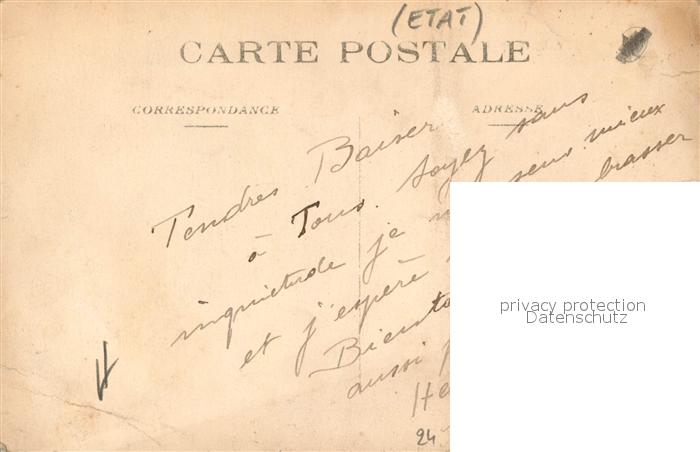 (ETAT)
CARTE POSTALE
CORRESPONDANCE
ADRESSE
Tendres Baiser
à Tous. Soyez sans
inquietude je sens mieux
et j'espére brasser
Bientô
aussi
He
24
privacy protection
Datenschutz